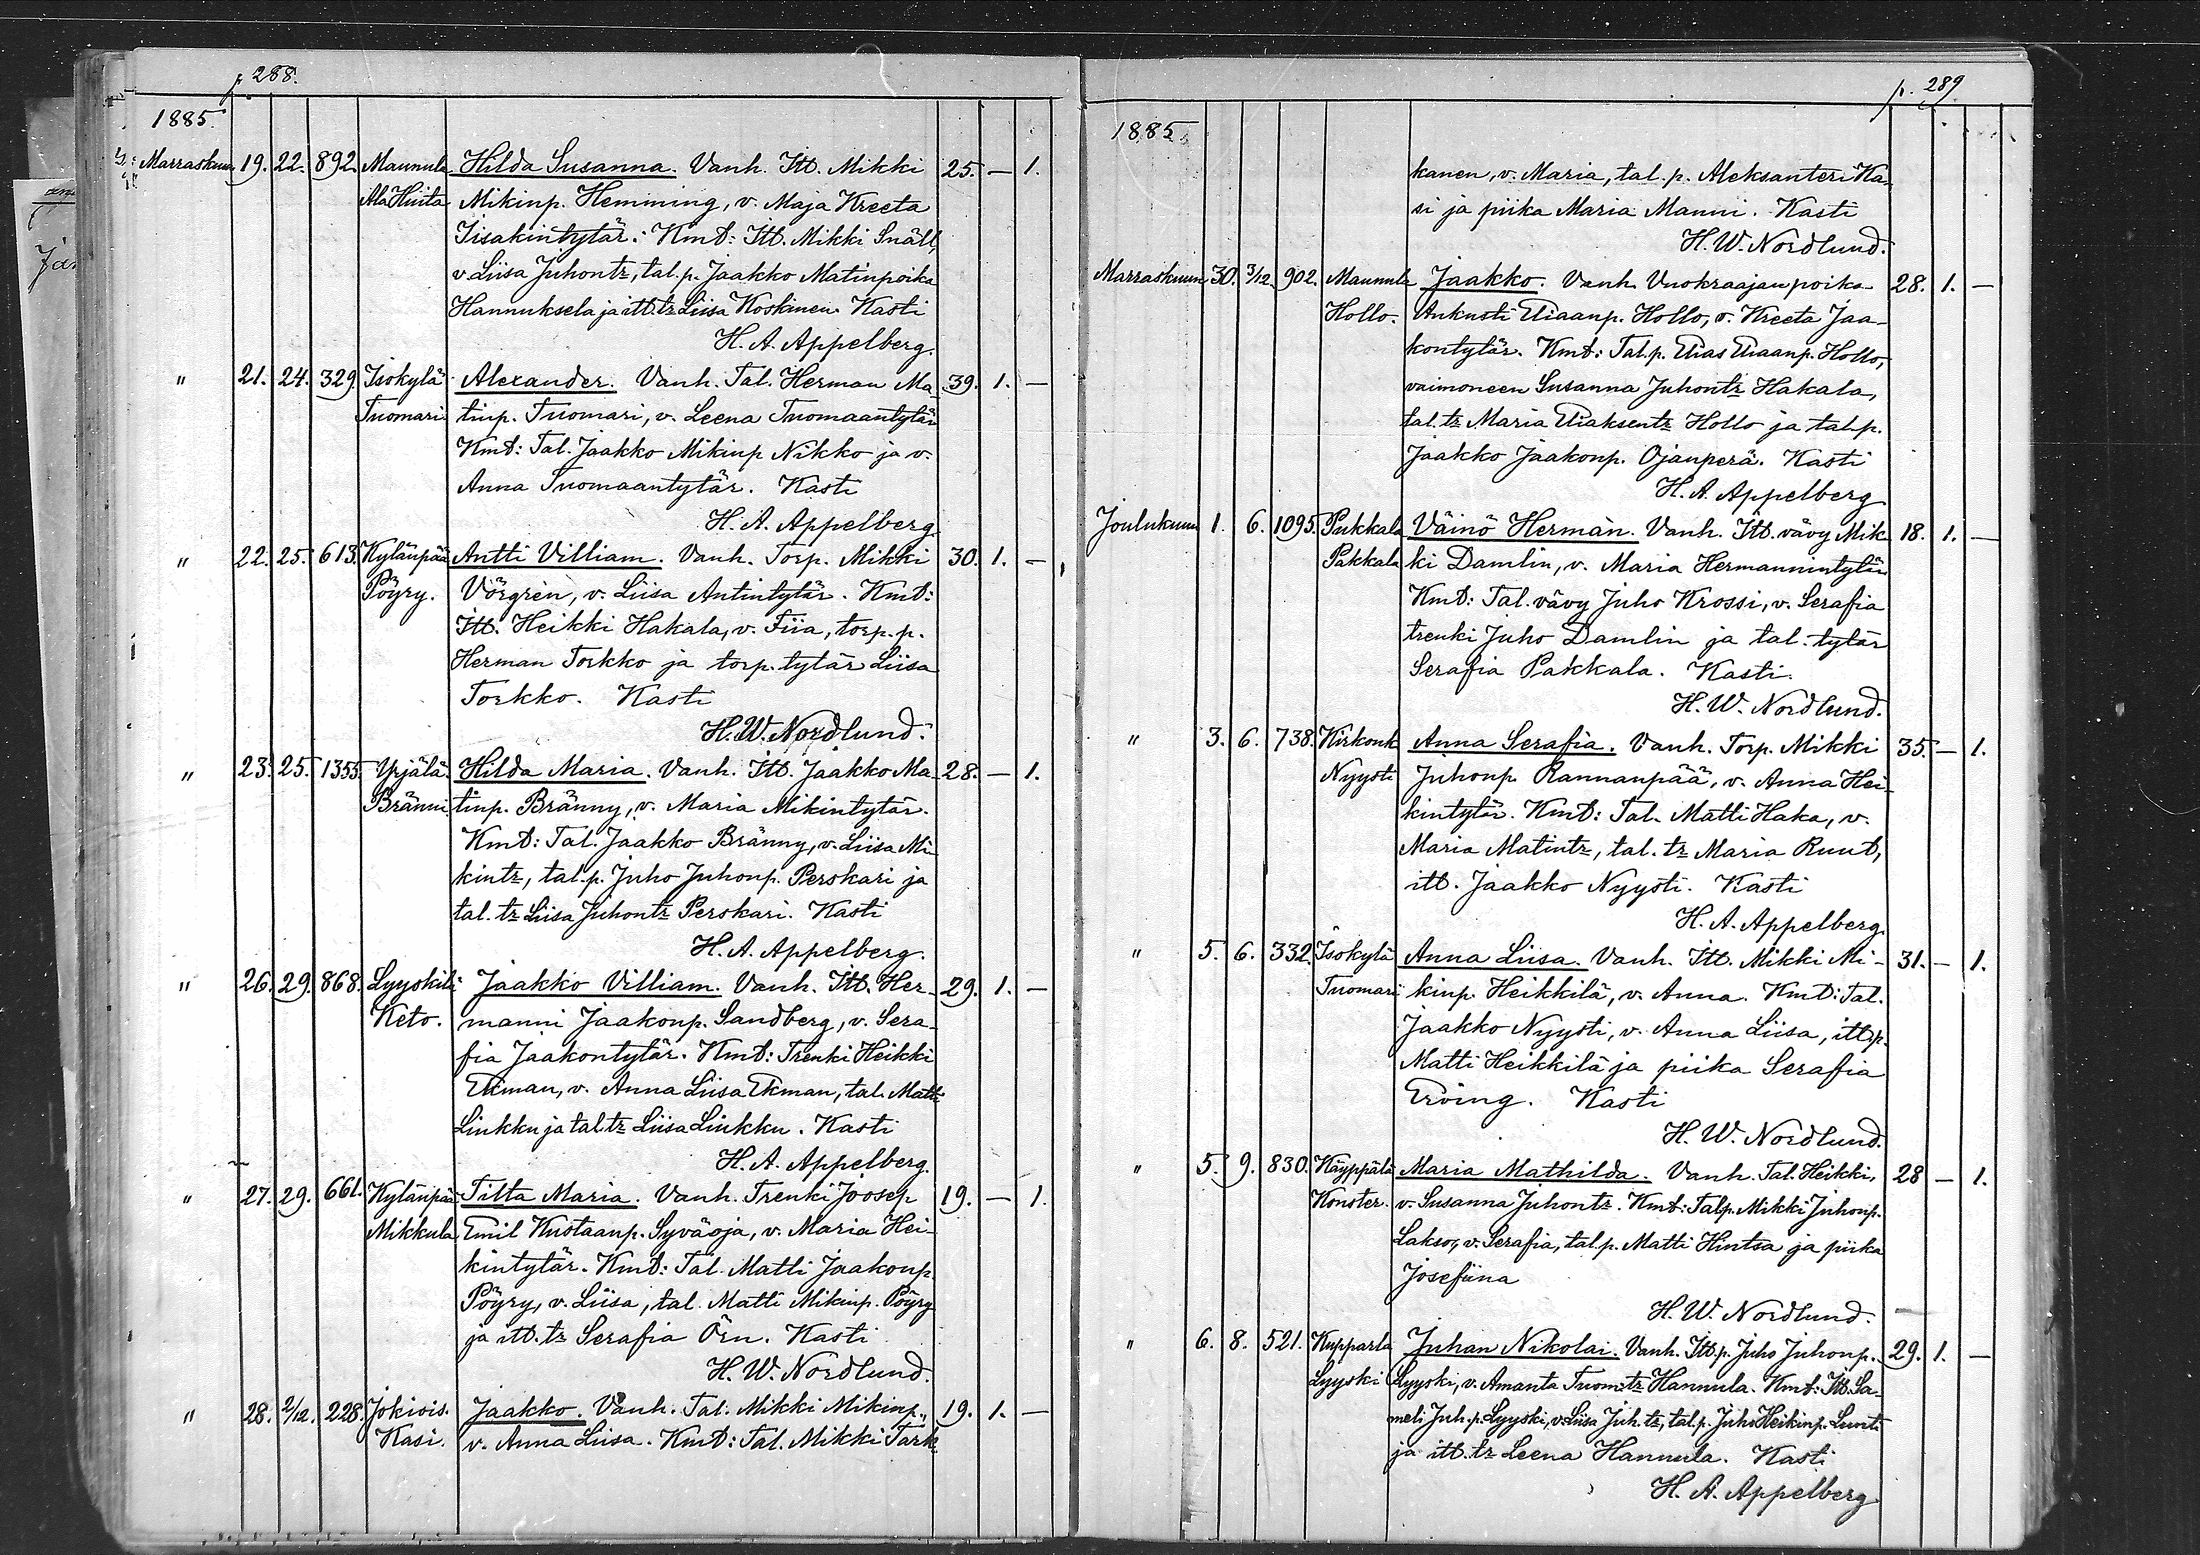 p. 288.
1885.
Marraskuun 19. 22. 892. Maunula Hilda Susanna. Vanh. Itt. Mikki 25. — 1.
AlaHiuta Mikinp. Hemming, v. Maja Kreeta
Iisakintytär. Kmt: Itt. Mikki Snäll,
v. Liisa Juhontr, tal. p. Jaakko Matinpoika
Hannuksela ja itt. tr Liisa Koskinen. Kasti
H. A. Appelberg.
" 21. 24. 329. Isokylä Alexander. Vanh. Tal. Herman Ma- 39. 1. —
Tuomari tinp. Tuomari, v. Leena Tuomaantytär
Kmt: Tal. Jaakko Mikinp Nikko ja v.
Anna Tuomaantytär. Kasti
H. A. Appelberg.
" 22. 25. 613. Kylänpää Antti Villiam. Vanh. Torp. Mikki 30. 1. —
Pöyry. Vörgren, v. Liisa Antintytär. Kmt:
Itt. Heikki Hakala, v. Fiia, torp. p.
Herman Torkko ja torp. tytär Liisa
Torkko. Kasti
H. W. Nordlund.
" 23. 25. 1355. Yrjälä Hilda Maria. Vanh. Itt. Jaakko Ma- 28. — 1.
Bränni tinp. Bränny, v. Maria Mikintytär.
Kmt: Tal. Jaakko Bränny, v. Liisa Mi-
kintr, tal. p. Juho Juhonp. Perskari ja
tal. tr Liisa Juhontr Perskari. Kasti
H. A. Appelberg.
" 26. 29. 868. Lyyskilä Jaakko Villiam. Vanh. Itt. Her- 29. 1. —
Keto. manni Jaakonp. Sandberg, v. Sera-
fia Jaakontytär. Kmt: Trenki Heikki
Ekman, v. Anna Liisa Ekman, tal. Matti
Liukku ja tal. tr Liisa Liukku. Kasti
H. A. Appelberg.
" 27. 29. 661. Kylänpää Tilta Maria. Vanh. Trenki Joosep 19. — 1.
Mikkula Emil Kustaanp. Syväoja, v. Maria Hei-
kintytär. Kmt: Tal. Matti Jaakonp.
Pöyry, v. Liisa, tal. Matti Mikinp. Pöyry
ja itt. tr Serafia Örn. Kasti
H. W. Nordlund.
" 28. 2/12. 228. Jokivis. Jaakko. Vanh. Tal. Mikki Mikinp., 19. 1. —
Kasi. v. Anna Liisa. Kmt: Tal. Mikki Tark-
p. 289
1885.
kanen, v. Maria, tal. p. Aleksanteri Ka-
si ja piika Maria Manni. Kasti
H. W. Nordlund.
Marraskuun 30. 3/12. 902. Maunula Jaakko. Vanh. Vuokraajan poika 28. 1. —
Hollo. Aukusti Eliaanp. Hollo, v. Kreeta Jaa-
kontytär. Kmt: Tal. p. Elias Eliaanp. Hollo,
vaimoneen Susanna Juhontr Hakala,
tal. tr Maria Eliaksentr Hollo ja tal. p.
Jaakko Jaakonp. Ojanperä. Kasti
H. A. Appelberg
Joulukuun 1. 6. 1095. Pukkala Väinö Herman. Vanh. Itt. vävy Mik- 18. 1. —
Pakkala ki Damlin, v. Maria Hermannintytär
Kmt: Tal. vävy Juho Krossi, v. Serafia
trenki Juho Damlin ja tal. tytär
Serafia Pakkala. Kasti.
H. W. Nordlund.
" 3. 6. 738. Kirkonk Anna Serafia. Vanh. Torp. Mikki 35. — 1.
Nyysti Juhonp. Rannanpää, v. Anna Hei-
kintytär. Kmt: Tal. Matti Haka, v.
Maria Matintr, tal. tr Maria Ruut,
itt. Jaakko Nyysti. Kasti
H. A. Appelberg.
" 5. 6. 332. Isokylä Anna Liisa. Vanh. Itt. Mikki Mi- 31. — 1.
Tuomari kinp. Heikkilä, v. Anna. Kmt: Tal.
Jaakko Nyysti, v. Anna Liisa, itt. p.
Matti Heikkilä ja piika Serafia
Erving. Kasti
H. W. Nordlund.
" 5. 9. 830. Käyppälä Maria Mathilda. Vanh. Tal. Heikki, 28 — 1.
Konster. v. Susanna Juhontr. Kmt: Talp. Mikki Juhonp.
Lakso, v. Serafia, tal. p. Matti Hintsa ja piika
Josefiina
H. W. Nordlund.
" 6. 8. 521. Kupparla Juhan Nikolai. Vanh. Itt. p. Juho Juhonp. 29. 1. —
Lyyski Lyyski, v. Amanta Tuom. tr Hannula. Kmt: Itt. Sa-
meli Juh. p. Lyyski, v. Liisa Juh. tr, tal. p. Juho Heikinp. Luoti
ja itt. tr Leena Hannula. Kasti
H. A. Appelberg